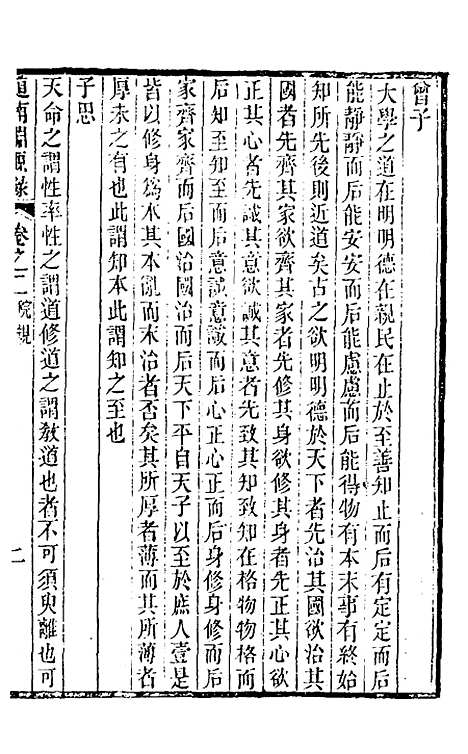 曾子
大學之道在明明德在親民在止於至善知止而后有定定而后
能靜靜而后能安安而后能慮慮而后能得物有本末事有終始
知所先後則近道矣古之欲明明德於天下者先治其國欲治其
國者先齊其家欲齊其家者先修其身欲修其身者先正其心欲
正其心者先誠其意欲誠其意者先致其知致知在格物物格而
后知至知至而后意誠意誠而后心正心正而后身修身修而后
家齊家齊而后國治國治而后天下平自天子以至於庶人壹是
皆以修身爲本其本亂而末治者否矣其所厚者薄而其所薄者
厚未之有也此謂知本此謂知之至也
子思
天命之謂性率性之謂道修道之謂教道也者不可須臾離也可
道南淵源錄 卷之二 院規 二